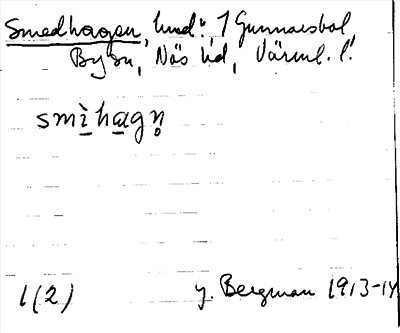 Smedhagen, lund u. 1 Gunnarsbol,
By sn, Näs hd, Värml. l.
smìhagn̥
1(2) G. Bergman 1913-14